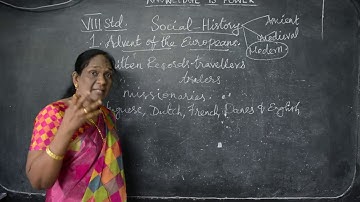 KNOWLEDGE IS POWER
VIII Std. Social-History
Ancient
Medieval
Modern
1. Advent of the Europeans.
written Records-travellers
traders
missionaries.
Dutch, French, Danes & English